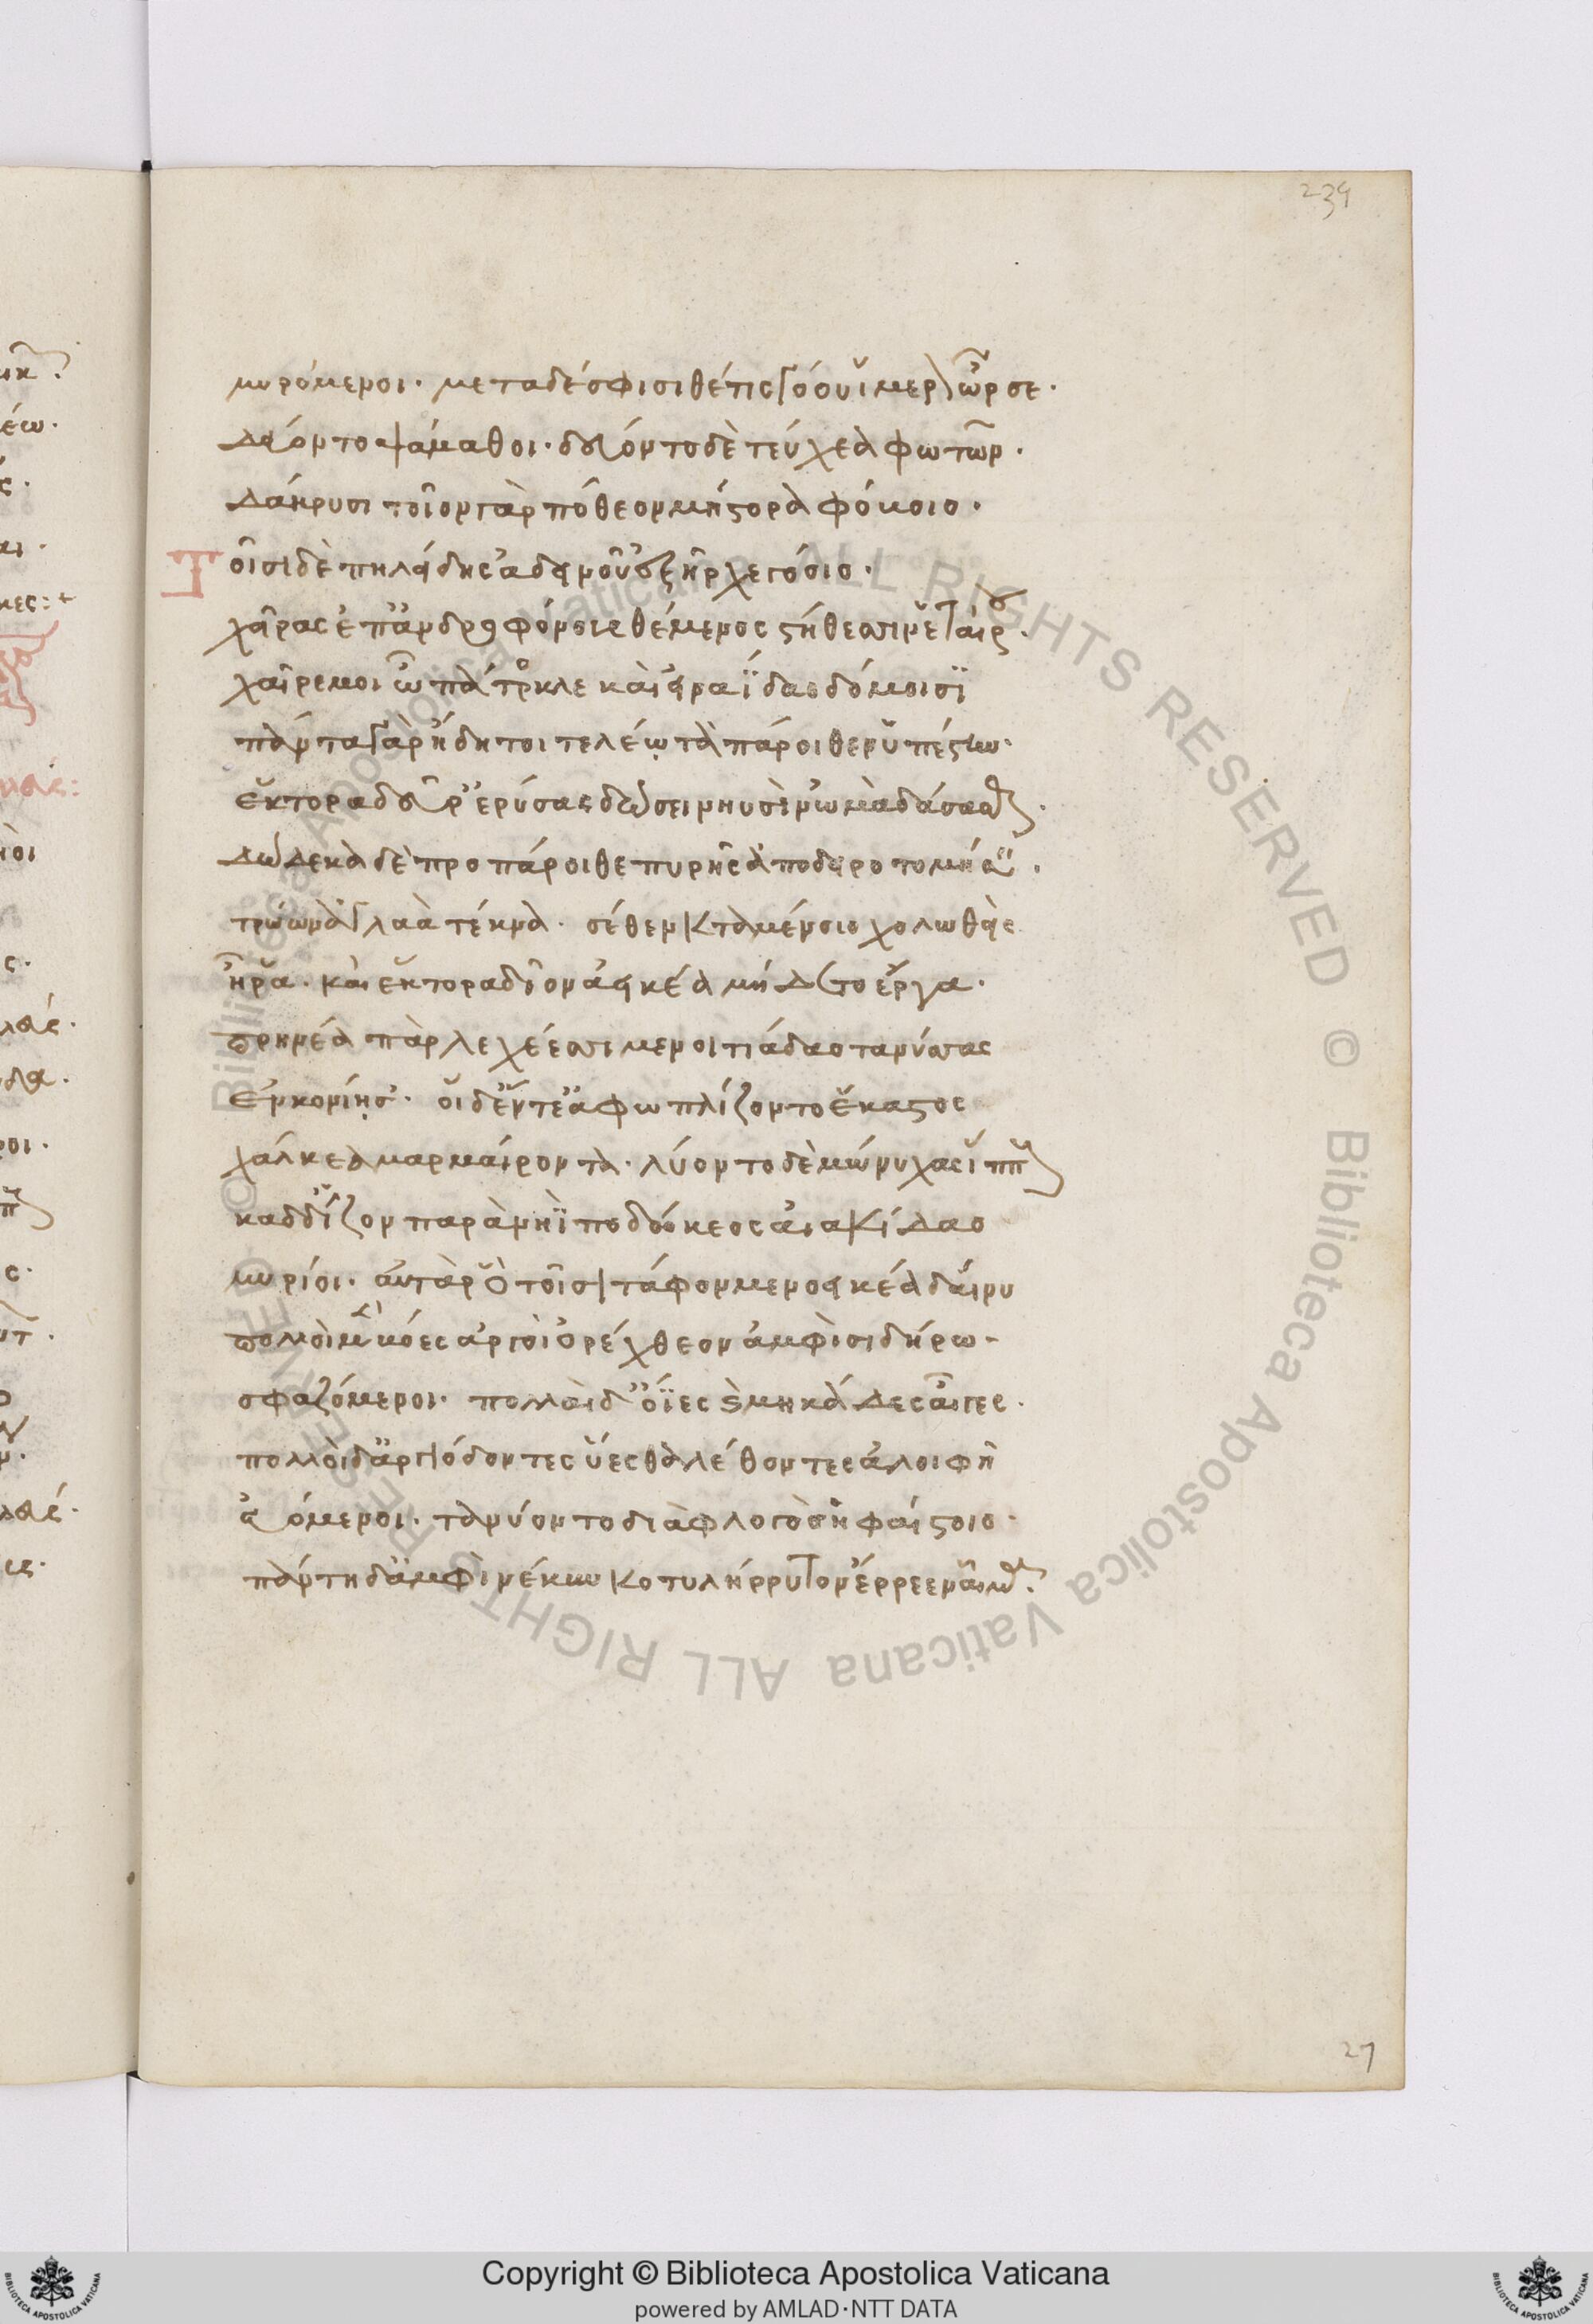 239
μυρόμενοι· μεταδέσφισι θέτις γόου ἵμερον ὦρσε·
δεύοντο ψάμαθοι· δεύοντο δὲ τεύχεα φωτῶν·
δάκρυσι τοῖον γὰρ πόθεον μήστορα φόβοιο·
Τοῖσι δὲ πηλείδης ἁδινοῦ ἐξῆρχε γόοιο·
χεῖρας ἐπ' ἀνδροφόνους θέμενος στήθεσσιν ἑταίρου·
χαῖρέ μοι ὦ πάτροκλε καὶ εἰν ἀΐδαο δόμοισϊ
πάντα γὰρ ἤδη τοι τελέω τὰ πάροιθεν ὑπέστην·
ἕκτορα δεῦρ' ἐρύσας δώσειν κυσὶν ὠμὰ δάσασθαι·
δώδεκα δὲ προπάροιθε πυρῆς ἀποδειροτομήσειν·
τρώων ἀγλαὰ τέκνα· σέθεν κταμένοιο χολωθείς
ἦ ῥα· καὶ ἕκτορα δῖον ἀεικέα μήδετο ἔργα·
πρηνέα πὰρ λεχέεσσι μενοιτιάδαο τανύσσας
ἐν κονίῃσ'· οἱ δ' ἔντε' ἀφωπλίζοντο ἕκαστος
χάλκεα μαρμαίροντα· λύοντο δὲ μώνυχας ἵππους
καδδ' ἷζον παρὰ νηῒ ποδώκεος αἰακίδαο
μυρίοι· αὐτὰρ ὁ τοῖσι τάφον μενοεικέα δαίνυ
πολλοὶ μὲν βόες ἀργοὶ ὀρέχθεον ἀμφὶ σιδήρω
σφαζόμενοι· πολλαὶ δ' ὄϊες καὶ μηκάδες αἶγες·
πολλοὶ δ' ἀργιόδοντες ὕες θαλέθοντες ἀλοιφῆ
εὑόμενοι· τανύοντο διὰ φλογὸς ἡφαίστοιο·
πάντη δ' ἀμφὶ νέκυν κοτυλήρρυτον ἔρρεεν αἷμα·
27
© Biblioteca Apostolica Vaticana ALL RIGHTS RESERVED © Biblioteca Apostolica Vaticana ALL RIGHTS RESERVED
Copyright © Biblioteca Apostolica Vaticana
powered by AMLAD·NTT DATA